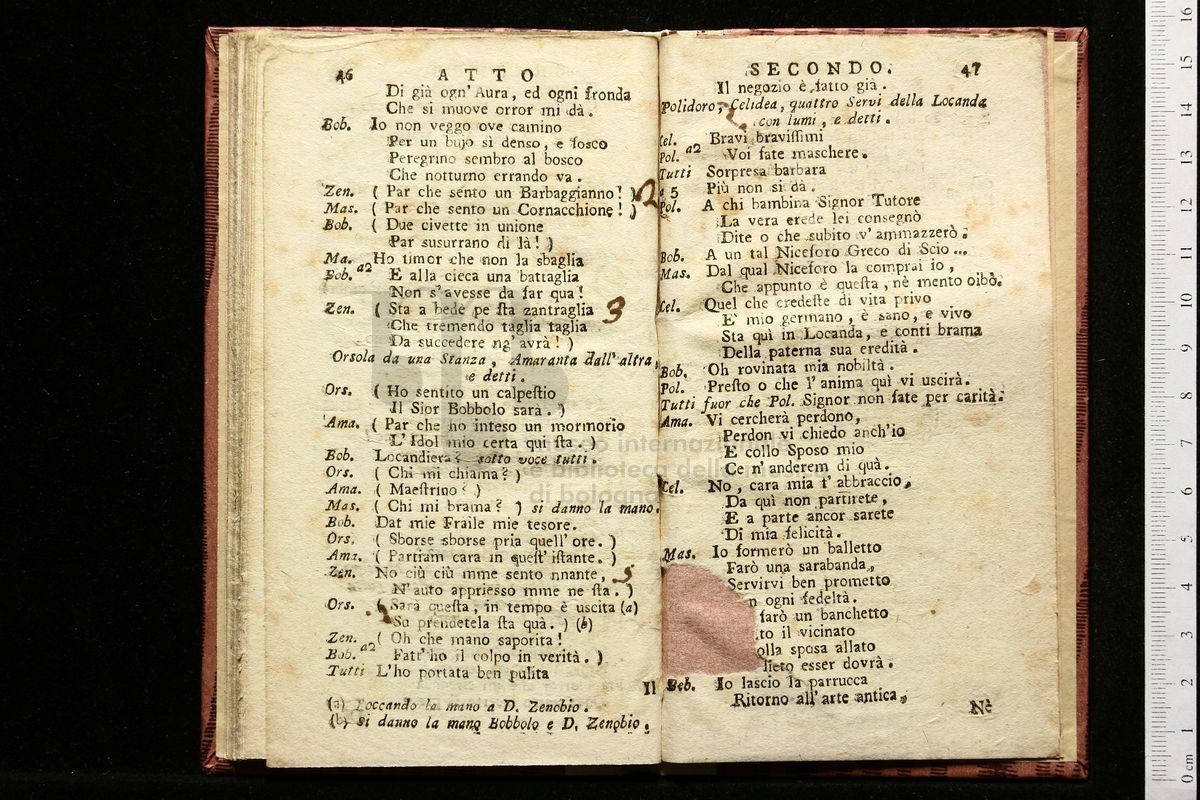 46 ATTO
Di già ogn' Aura, ed ogni fronda
Che si muove orror mi dà.
Bob. Io non veggo ove camino
Per un bujo sì denso, e fosco
Peregrino sembro al bosco
Che notturno errando va.
Zen. ( Par che sento un Barbaggianno! ) 2
Mas. ( Par che sento un Cornacchione! )
Bob. ( Due civette in unione
Par susurrano di là! )
Ma. Ho timor che non la sbaglia
Bob. a2 E alla cieca una battaglia
Non s' avesse da far qua!
Zen. ( Sta a bede pe sta zantraglia 3
Che tremendo taglia taglia
Da succedere ng' avrà! )
Orsola da una Stanza, Amaranta dall' altra,
e detti.
Ors. ( Ho sentito un calpestio
Il Sior Bobbolo sarà. )
Ama. ( Par che ho inteso un mormorio
L' Idol mio certa qui sta. )
Bob. Locandiera? sotto voce tutti.
Ors. ( Chi mi chiama? )
Ama. ( Maestrino? )
Mas. ( Chi mi brama? ) si danno la mano.
Bob. Dat mie Fraile mie tesore.
Ors. ( Sborse sborse pria quell' ore. )
Ama. ( Partiam cara in quest' istante. )
Zen. No ciù ciù mme sento nnante, 5
N' auto appriesso mme ne sta. )
Ors. ( Sarà questa, in tempo è uscita (a)
Su prendetela sta quà. ) (b)
Zen. ( Oh che mano saporita!
Bob. a2 Fatt' ho il colpo in verità. )
Tutti L'ho portata ben pulita
Il
(a) Toccando la mano a D. Zenobio.
(b) si danno la mano Bobbolo e D. Zenobio.
SECONDO. 47
Il negozio è fatto già.
Polidoro, Celidea, quattro Servi della Locanda
con lumi, e detti.
Cel. Bravi bravissimi
Pol. a2 Voi fate maschere.
Tutti Sorpresa barbara
a 5 Più non si dà.
Pol. A chi bambina Signor Tutore
La vera erede lei consegnò
Dite o che subito v' ammazzerò.
Bob. A un tal Niceforo Greco di Scio ...
Mas. Dal qual Niceforo la comprai io,
Che appunto è questa, nè mento oibò.
Cel. Quel che credeste di vita privo
E' mio germano, è sano, e vivo
Sta quì in Locanda, e conti brama
Della paterna sua eredità.
Bob. Oh rovinata mia nobiltà.
Pol. Presto o che l' anima quì vi uscirà.
Tutti fuor che Pol. Signor non fate per carità.
Ama. Vi cercherà perdono,
Perdon vi chiedo anch'io
E collo Sposo mio
Ce n' anderem di quà.
Cel. No, cara mia t' abbraccio,
Da quì non partirete,
E a parte ancor sarete
Di mia felicità.
Mas. Io formerò un balletto
Farò una sarabanda,
Servirvi ben prometto
n ogni fedeltà.
farò un banchetto
to il vicinato
olla sposa allato
lieto esser dovrà.
Bob. Io lascio la parrucca
Ritorno all' arte antica,
Nè
museo internazionale
e biblioteca della
di bologna